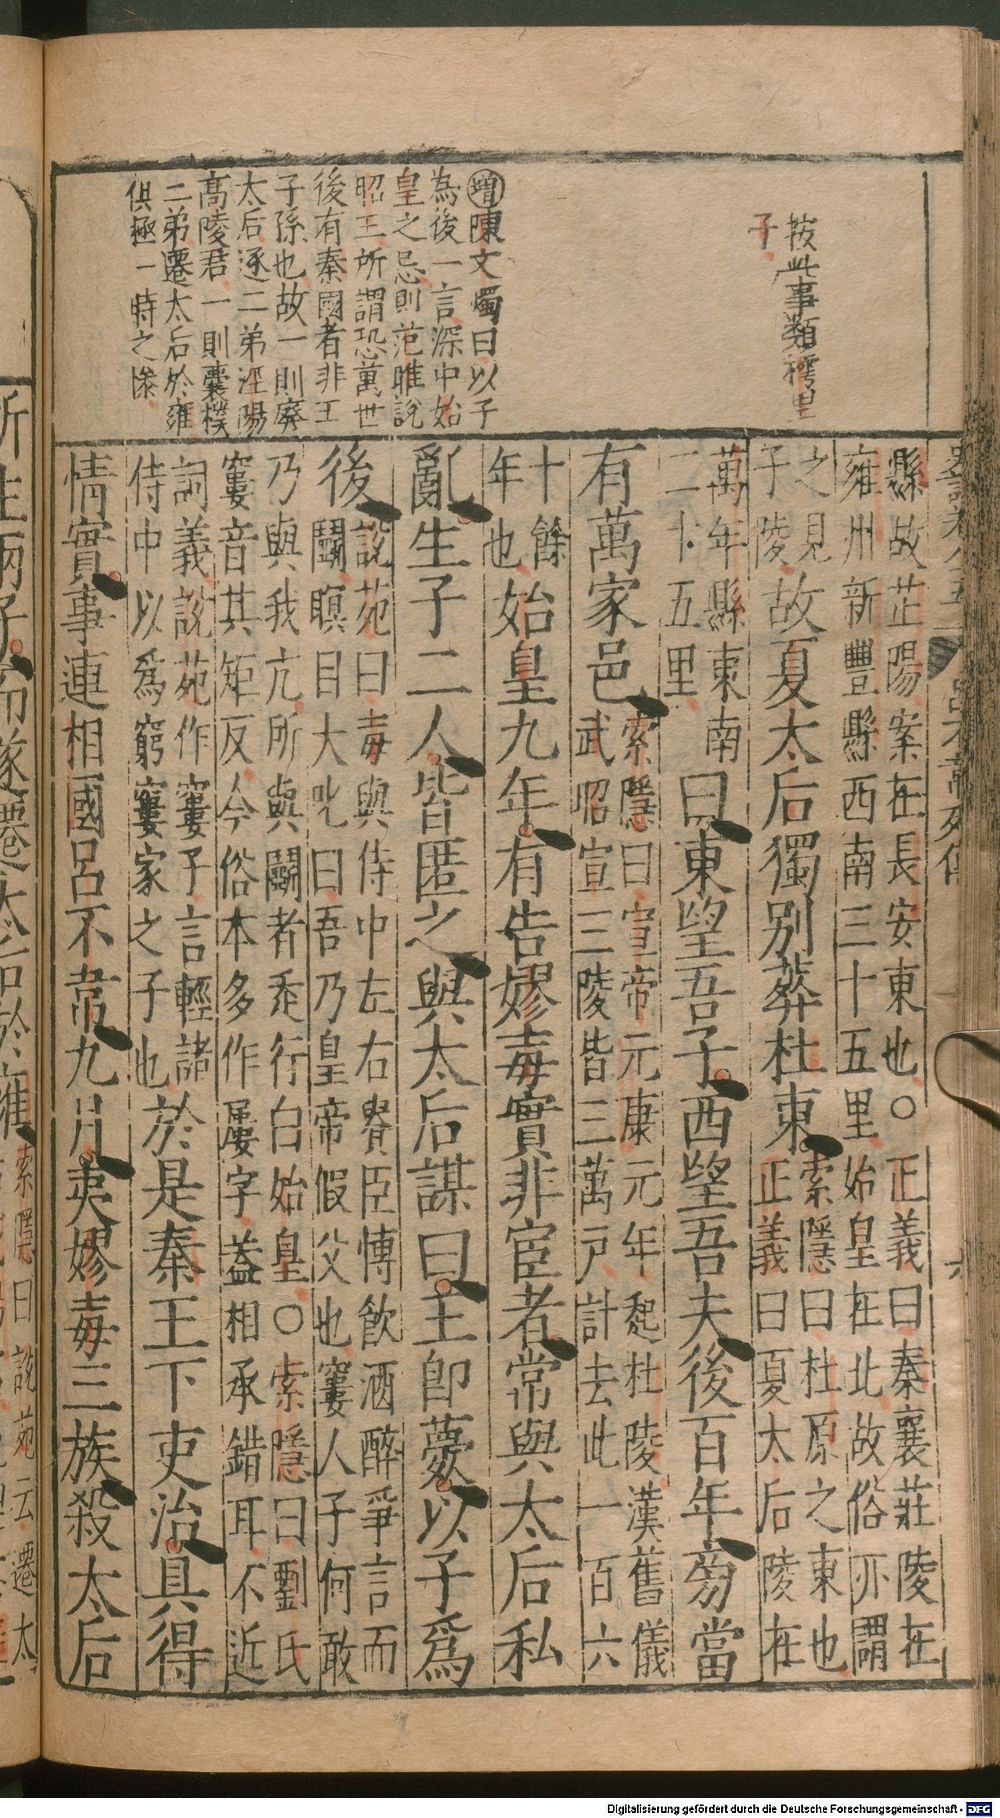 按此事類樗里
子
增陳文燭曰以子
為後一言深中始
皇之忌則范睢說
昭王所謂恐萬世
後有秦國者非王
子孫也故一則廢
太后逐二弟涇陽
高陵君一則囊樸
二弟遷太后於雍
俱極一時之慘
縣故芷陽案在長安東也○正義曰秦襄莊陵在
雍州新豐縣西南三十五里始皇在北故俗亦謂
之見
子陵
故夏太后獨別葬杜東
索隱曰杜原之東也
正義曰夏太后陵在
萬年縣東南
二十五里
曰東望吾子西望吾夫後百年旁當
有萬家邑
索隱曰宣帝元康元年起杜陵漢舊儀
武昭宣三陵皆三萬戸計去此一百六
十餘
年也
始皇九年有告嫪毐實非宦者常與太后私
亂生子二人皆匿之與太后謀曰王即薨以子爲
後
說苑曰毐與侍中左右貴臣博飲酒醉爭言而
鬬瞋目大叱曰吾乃皇帝假父也窶人子何敢
乃與我亢所與鬬者走行白始皇○索隱曰劉氏
窶音其矩反今俗本多作屢字蓋相承錯耳不近
詞義說苑作窶子言輕諸
侍中以爲窮窶家之子也
於是秦王下吏治具得
情實事連相國呂不韋九月夷嫪毐三族殺太后
所生兩子而遂遷太后於雍
索隱曰說苑云遷太
Digitalisierung gefördert durch die Deutsche Forschungsgemeinschaft - DFG